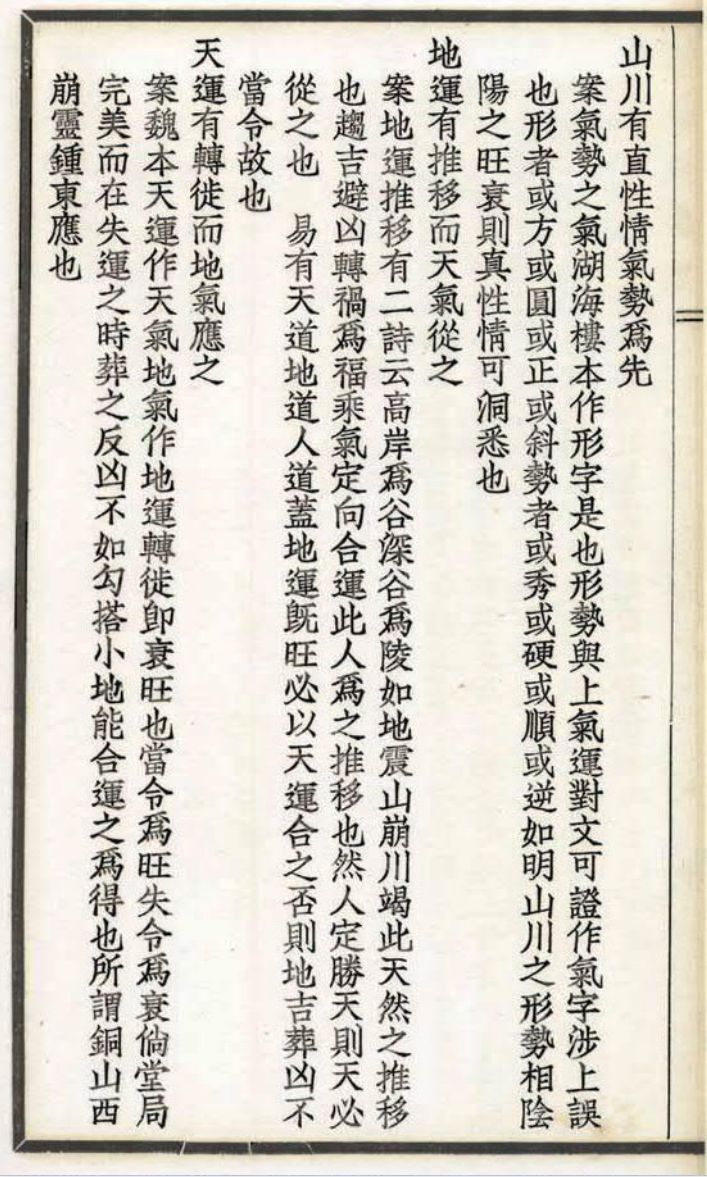 山川有直性情氣勢爲先
案氣勢之氣湖海樓本作形字是也形勢與上氣運對文可證作氣字涉上誤
也形者或方或圓或正或斜勢者或秀或硬或順或逆如明山川之形勢相陰
陽之旺衰則真性情可洞悉也
地運有推移而天氣從之
案地運推移有二詩云高岸爲谷深谷爲陵如地震山崩川竭此天然之推移
也趨吉避凶轉禍爲福乘氣定向合運此人爲之推移也然人定勝天則天必
從之也　易有天道地道人道蓋地運既旺必以天運合之否則地吉葬凶不
當令故也
天運有轉徙而地氣應之
案魏本天運作天氣地氣作地運轉徙卽衰旺也當令爲旺失令爲衰倘堂局
完美而在失運之時葬之反凶不如勾搭小地能合運之爲得也所謂銅山西
崩靈鍾東應也